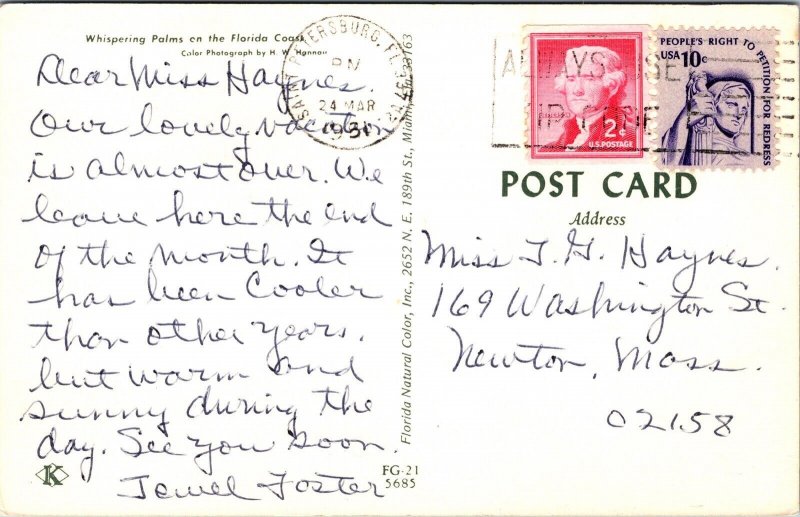 Whispering Palms on the Florida Coast
Color Photograph by H. W. Hannau
Dear Miss Haynes.
Our lovely vacation
is almost over. We
leave here the end
of the month. It
has been cooler
than other years.
but warm and
sunny during the
day. See you soon.
Jewel Foster
K
FG-21
5685
Florida Natural Color, Inc., 2652 N. E. 189th St., Miami, 33163
SAINT PETERSBURG, FL
PM
24 MAR
1981
ALWAYS USE
ZIP CODE
2¢
U.S. POSTAGE
PEOPLE'S RIGHT TO PETITION FOR REDRESS
USA 10c
POST CARD
Address
Miss T. H. Haynes.
169 Washington St.
Newton, Mass.
02158